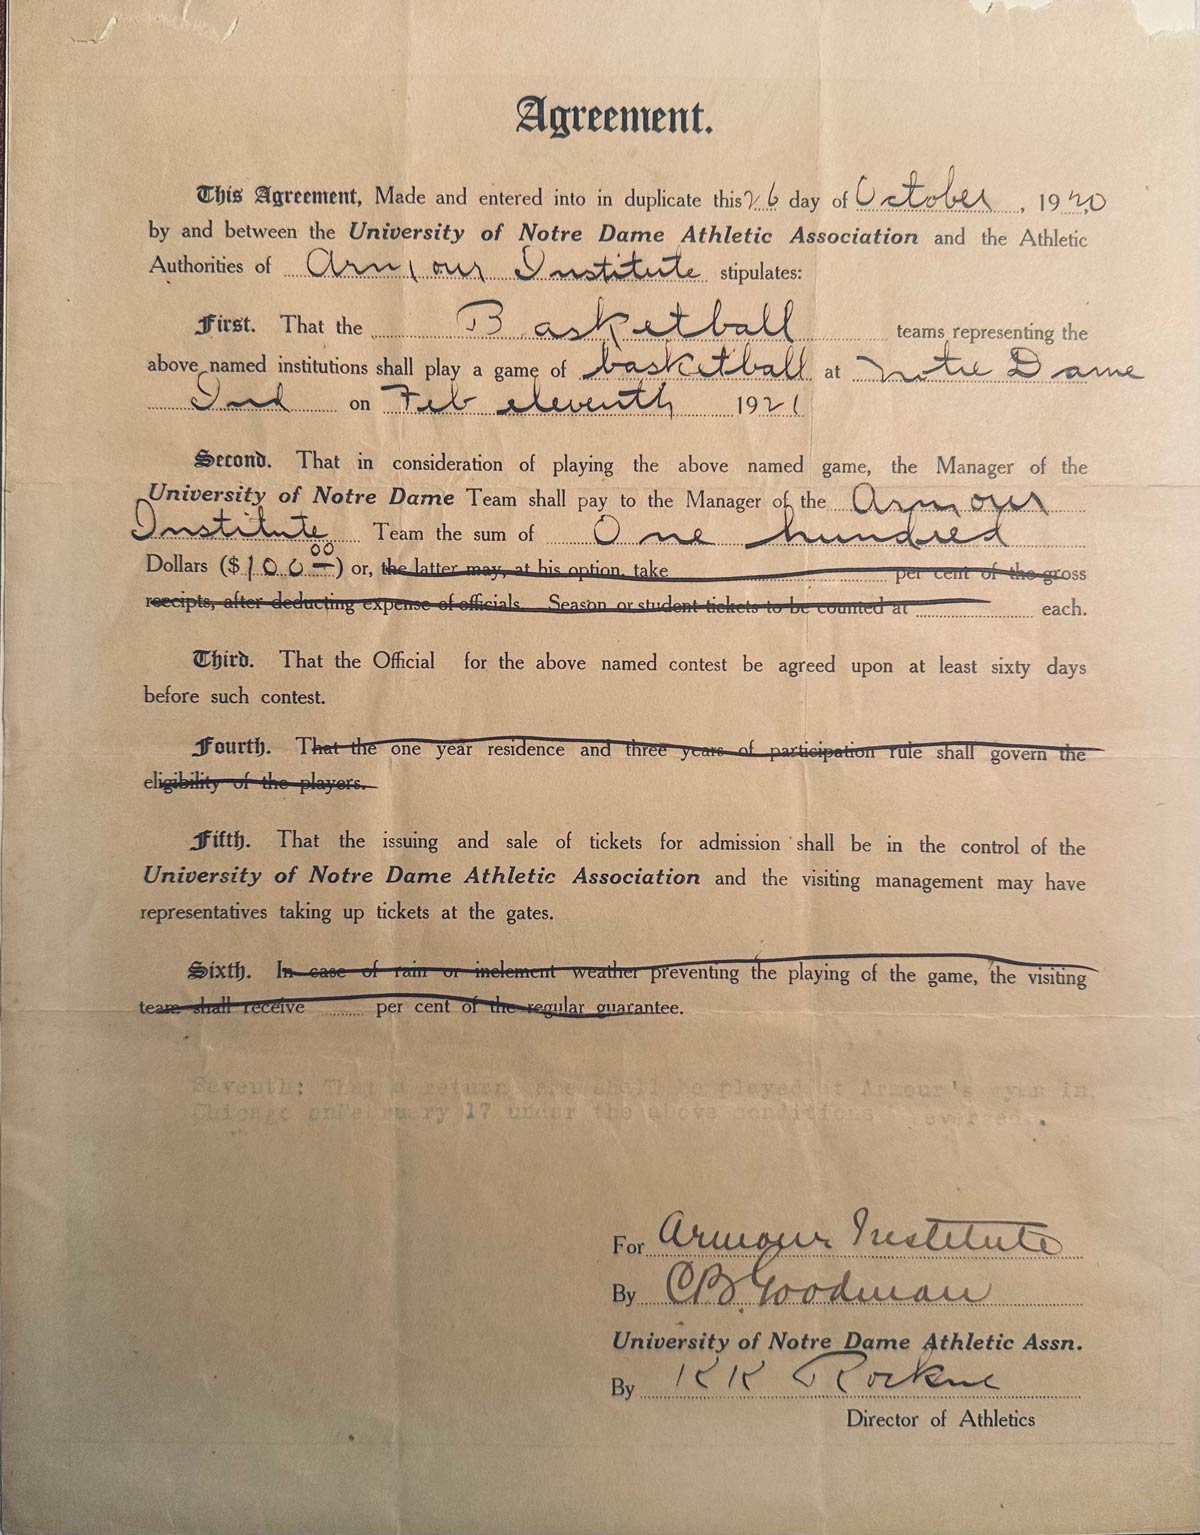 Agreement.
This Agreement, Made and entered into in duplicate this 26 day of October, 1920
by and between the University of Notre Dame Athletic Association and the Athletic
Authorities of Armour Institute stipulates:
First. That the Basketball teams representing the
above named institutions shall play a game of basketball at Notre Dame
Ind on Feb eleventh 1921
Second. That in consideration of playing the above named game, the Manager of the
University of Notre Dame Team shall pay to the Manager of the Armour
Institute Team the sum of One hundred
Dollars ($100 00) or, the latter may, at his option, take per cent of the gross
receipts, after deducting expense of officials. Season or student tickets to be counted at each.
Third. That the Official for the above named contest be agreed upon at least sixty days
before such contest.
Fourth. That the one year residence and three years of participation rule shall govern the
eligibility of the players.
Fifth. That the issuing and sale of tickets for admission shall be in the control of the
University of Notre Dame Athletic Association and the visiting management may have
representatives taking up tickets at the gates.
Sixth. In case of rain or inclement weather preventing the playing of the game, the visiting
team shall receive per cent of the regular guarantee.
Seventh: That a return shall be played at Armour's in
Chicago on February 17 under the above conditions
For Armour Institute
By C B. Goodman
University of Notre Dame Athletic Assn.
By K K Rockne
Director of Athletics